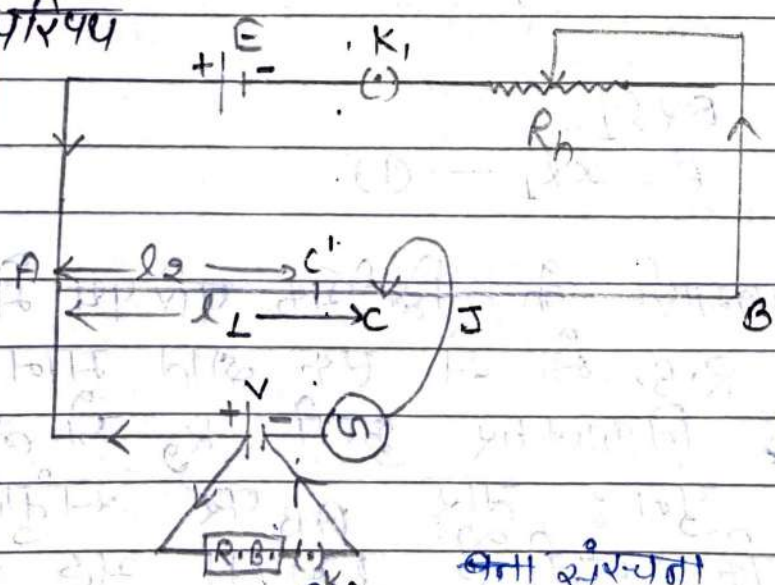 परिपथ
E K₁
+ -
Rh
A l2 C'
l1 C J B
V
+ - G
R.B. (.)
K2
संरचना